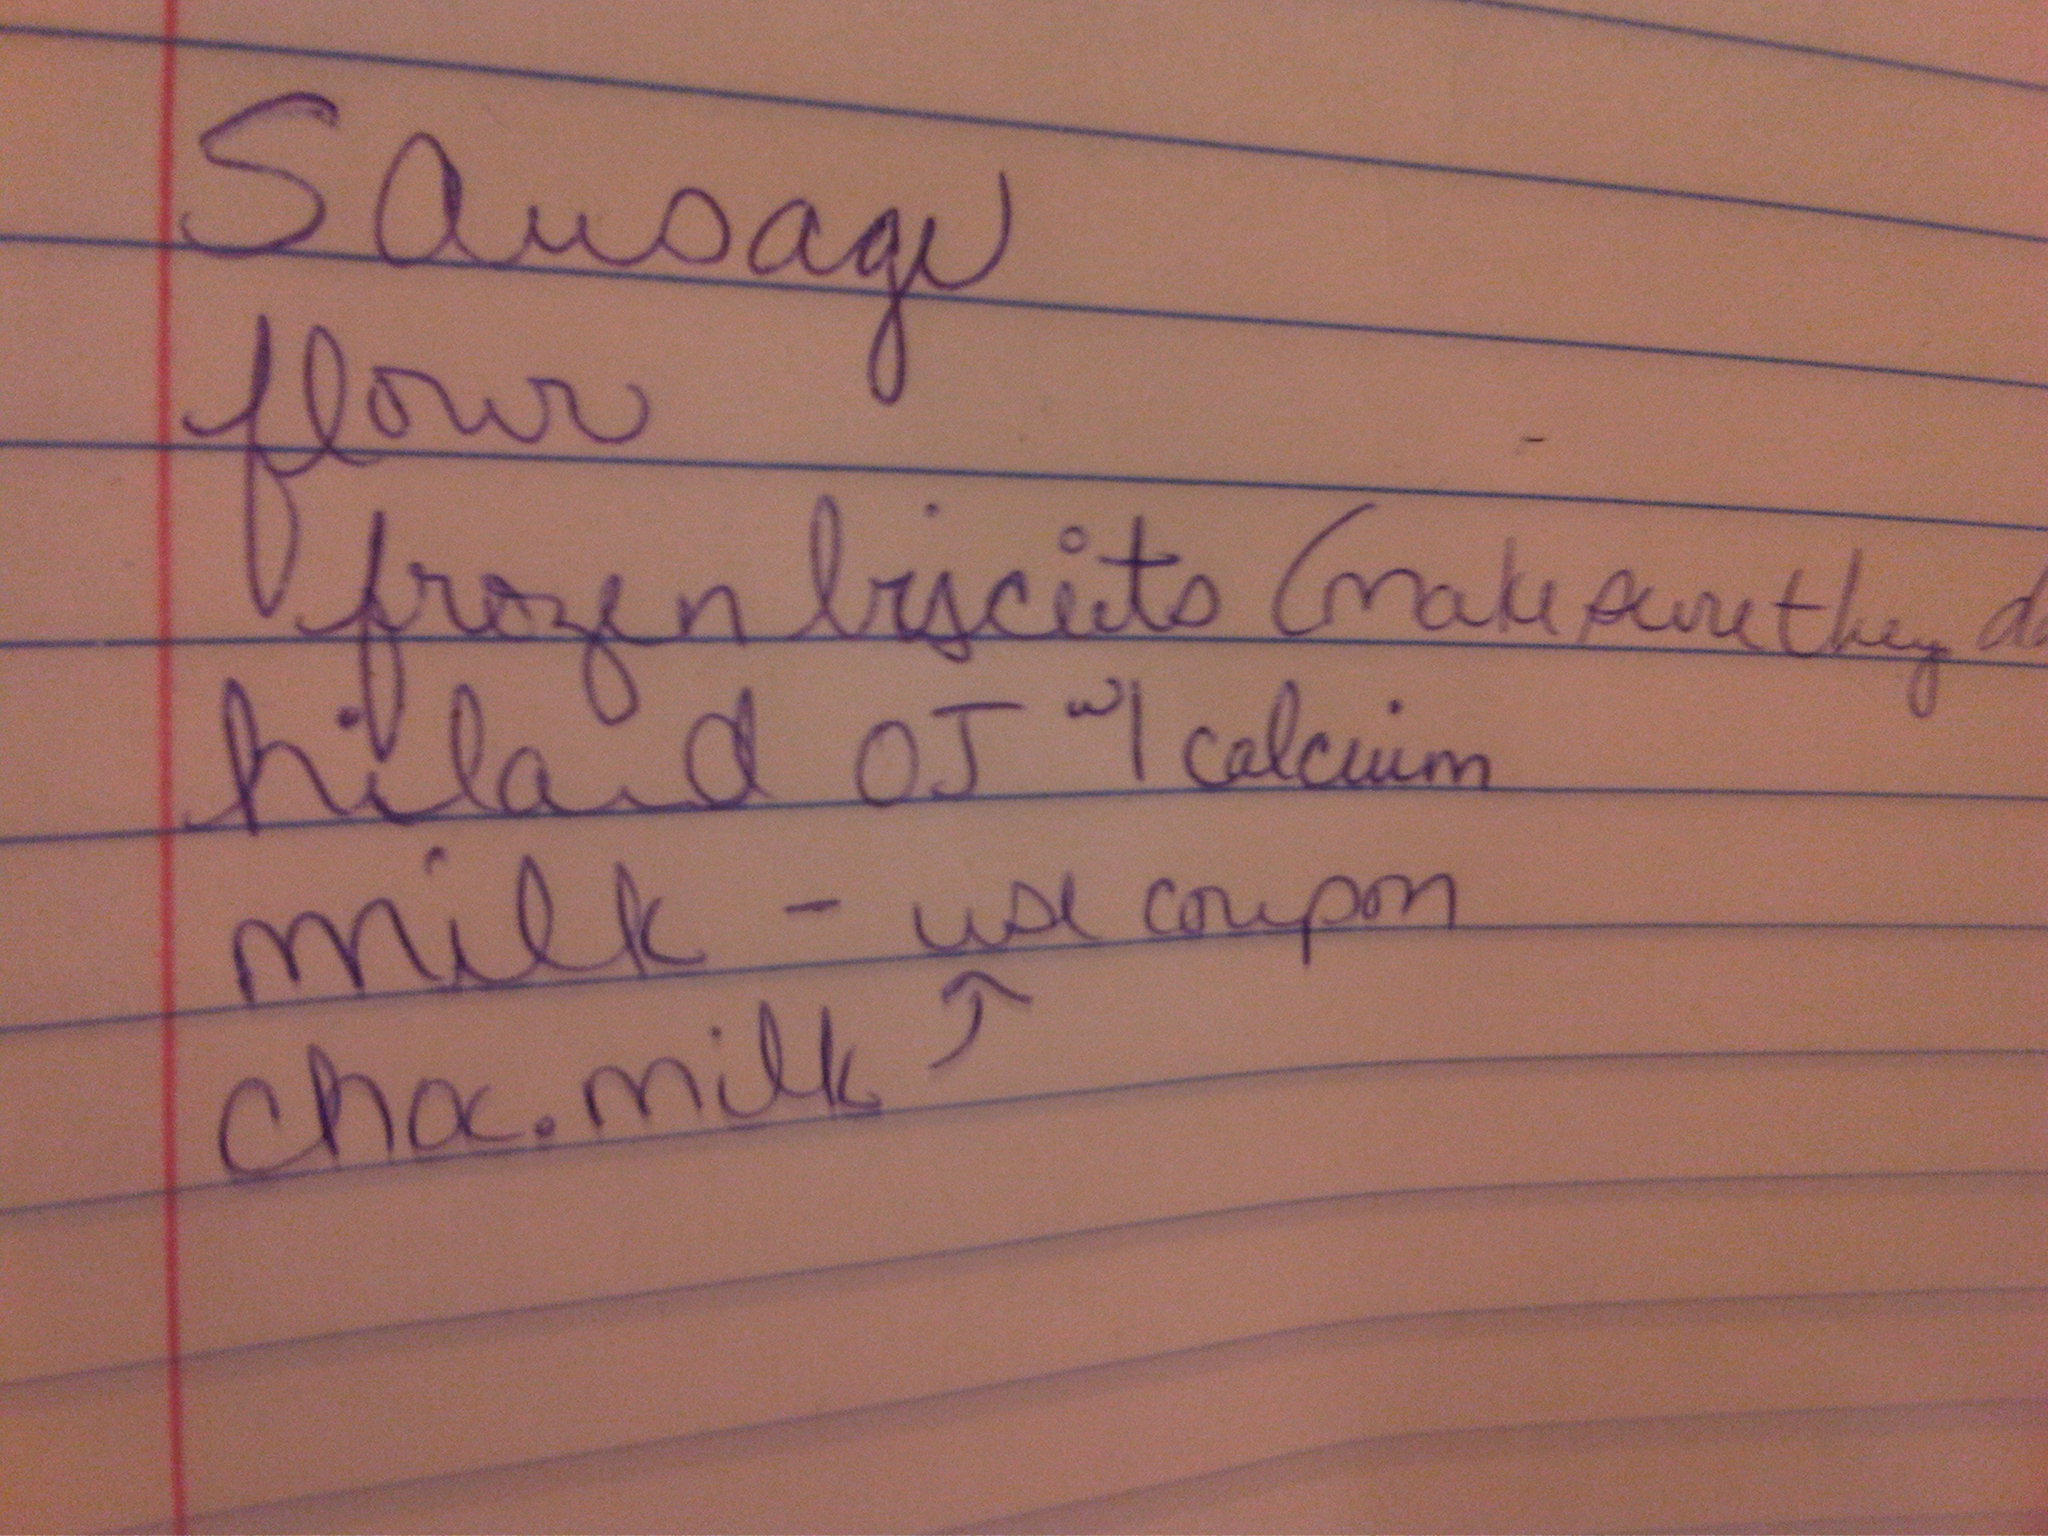 Sausage
flour
frozen biscuits (make sure they
hiland OJ w/ calcium
milk - use coupon
choc. milk ↑